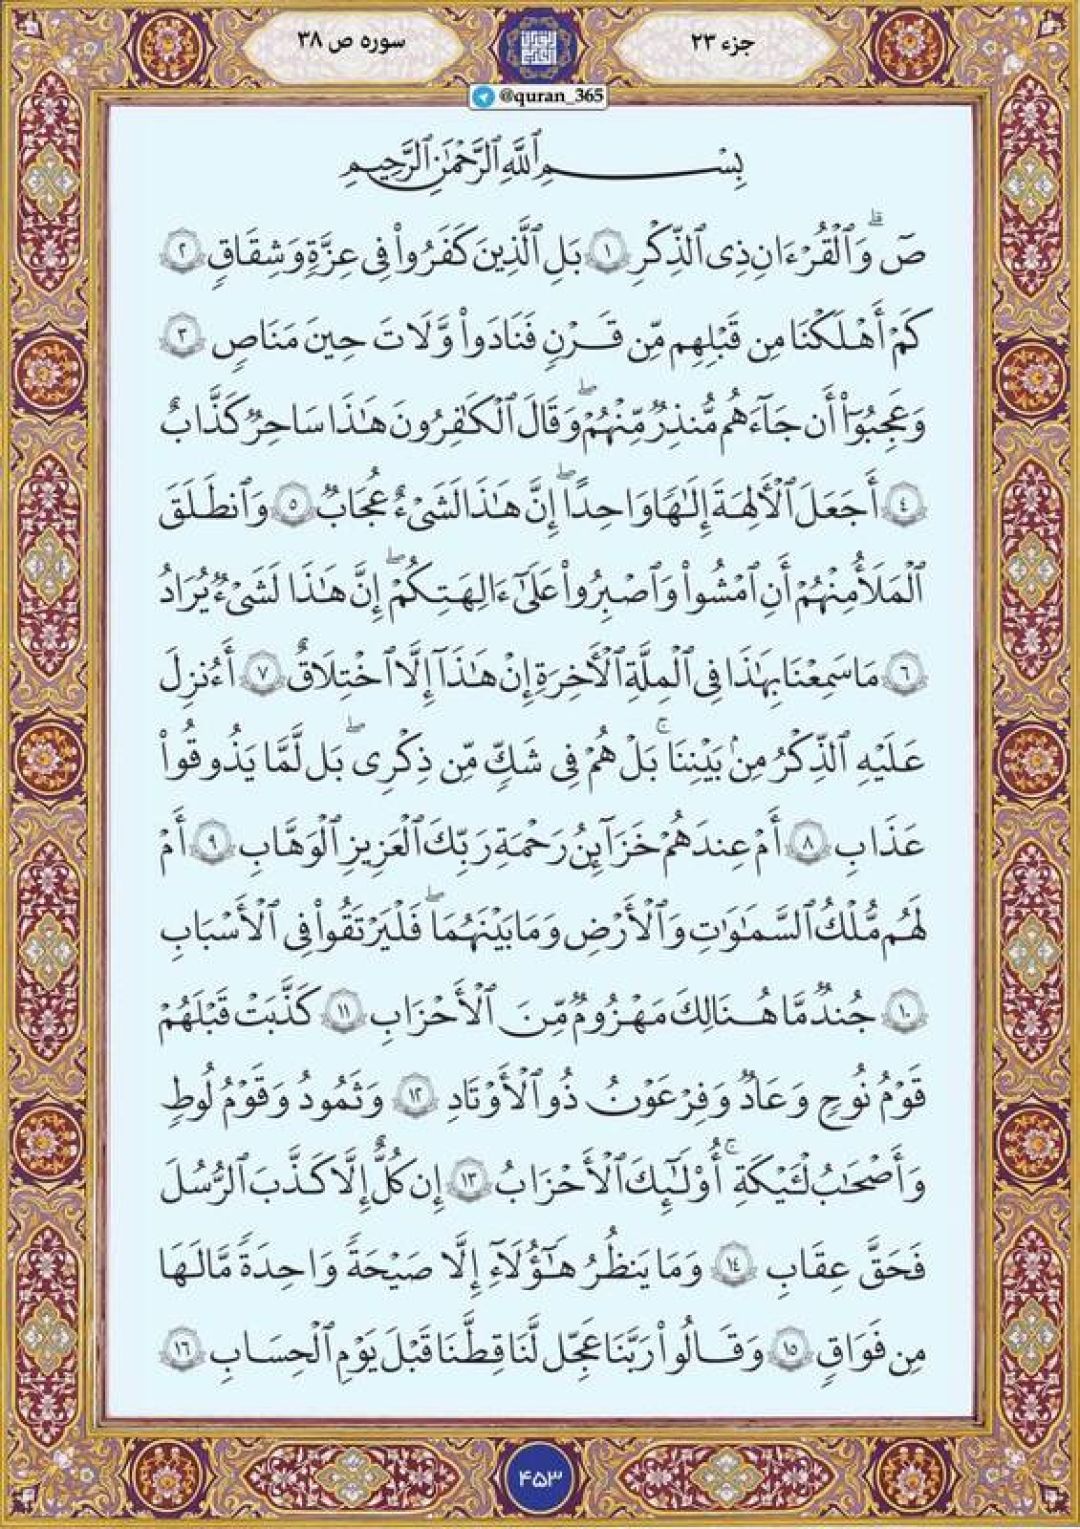 جزء ۲۳
سوره ص ۳۸
@quran_365
بِسْمِ ٱللَّهِ ٱلرَّحْمَٰنِ ٱلرَّحِيمِ
صٓ ۚ وَٱلْقُرْءَانِ ذِى ٱلذِّكْرِ ١ بَلِ ٱلَّذِينَ كَفَرُوا۟ فِى عِزَّةٍ وَشِقَاقٍ ٢
كَمْ أَهْلَكْنَا مِن قَبْلِهِم مِّن قَرْنٍ فَنَادَوا۟ وَّلَاتَ حِينَ مَنَاصٍ ٣
وَعَجِبُوٓا۟ أَن جَآءَهُم مُّنذِرٌ مِّنْهُمْ ۖ وَقَالَ ٱلْكَٰفِرُونَ هَٰذَا سَاحِرٌ كَذَّابٌ
٤ أَجَعَلَ ٱلْأَلِهَةَ إِلَٰهًا وَاحِدًا ۖ إِنَّ هَٰذَا لَشَىْءٌ عُجَابٌ ٥ وَٱنطَلَقَ
ٱلْمَلَأُ مِنْهُمْ أَنِ ٱمْشُوا۟ وَٱصْبِرُوا۟ عَلَىٰٓ ءَالِهَتِكُمْ ۖ إِنَّ هَٰذَا لَشَىْءٌ يُرَادُ
٦ مَا سَمِعْنَا بِهَٰذَا فِى ٱلْمِلَّةِ ٱلْأَخِرَةِ إِنْ هَٰذَآ إِلَّا ٱخْتِلَاقٌ ٧ أَءُنزِلَ
عَلَيْهِ ٱلذِّكْرُ مِنۢ بَيْنِنَا ۚ بَلْ هُمْ فِى شَكٍّ مِّن ذِكْرِى ۖ بَل لَّمَّا يَذُوقُوا۟
عَذَابِ ٨ أَمْ عِندَهُمْ خَزَآئِنُ رَحْمَةِ رَبِّكَ ٱلْعَزِيزِ ٱلْوَهَّابِ ٩ أَمْ
لَهُم مُّلْكُ ٱلسَّمَٰوَٰتِ وَٱلْأَرْضِ وَمَا بَيْنَهُمَا ۖ فَلْيَرْتَقُوا۟ فِى ٱلْأَسْبَابِ
١٠ جُندٌ مَّا هُنَالِكَ مَهْزُومٌ مِّنَ ٱلْأَحْزَابِ ١١ كَذَّبَتْ قَبْلَهُمْ
قَوْمُ نُوحٍ وَعَادٌ وَفِرْعَوْنُ ذُو ٱلْأَوْتَادِ ١٢ وَثَمُودُ وَقَوْمُ لُوطٍ
وَأَصْحَٰبُ لْـَٔيْكَةِ ۚ أُو۟لَٰٓئِكَ ٱلْأَحْزَابُ ١٣ إِن كُلٌّ إِلَّا كَذَّبَ ٱلرُّسُلَ
فَحَقَّ عِقَابِ ١٤ وَمَا يَنظُرُ هَٰٓؤُلَآءِ إِلَّا صَيْحَةً وَاحِدَةً مَّا لَهَا
مِن فَوَاقٍ ١٥ وَقَالُوا۟ رَبَّنَا عَجِّل لَّنَا قِطَّنَا قَبْلَ يَوْمِ ٱلْحِسَابِ ١٦
۴۵۳